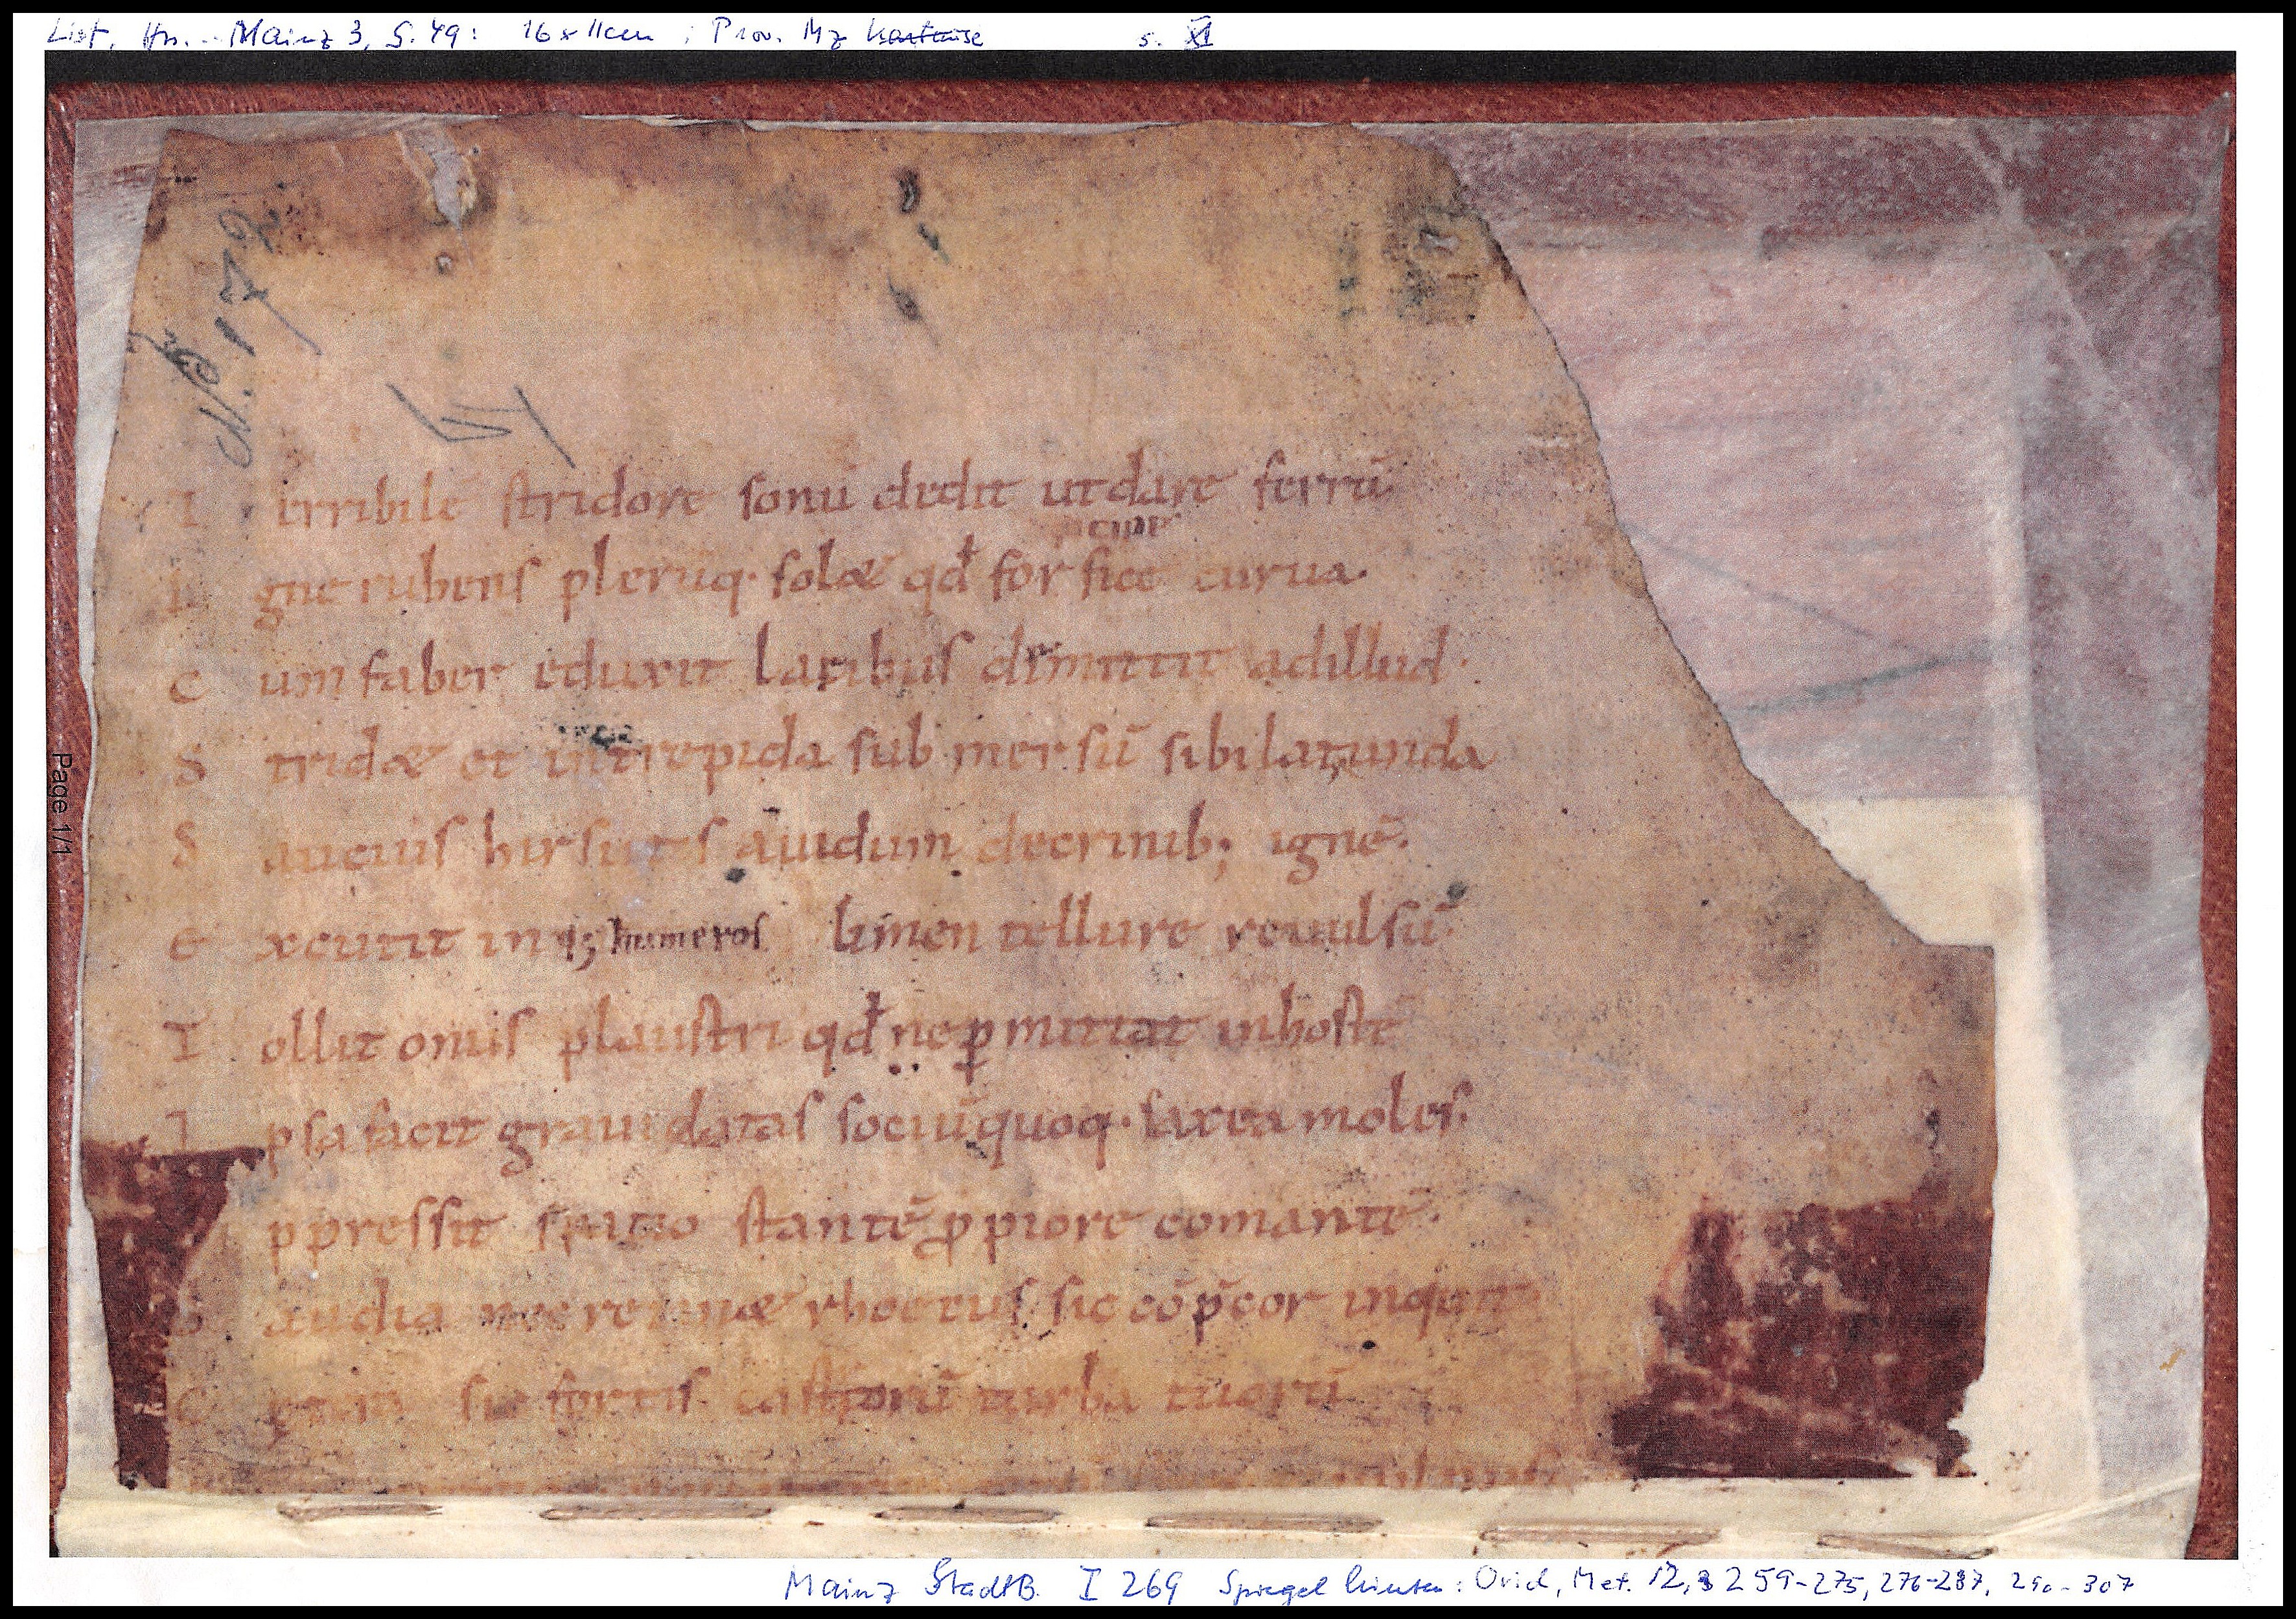 List, Hss. Mainz 3, S. 49: 16 x 11 cm ; Prov. Mz Kartause s. XI
N.º 172
T erribilē stridore sonū dedit ut dare ferrū
I gne rubens plerūq· solæ qđ forfice curua·
C um faber eduxit lacibus dimittit ad illud·
S tridæ et in trepida sub mersū sibilat unda
S aucius hirsutis auidum decrinib; ignē·
E xcutit inq; humeros limen tellure reuulsū·
T ollit onus plaustri qđ ne ꝑmittat in hostē
I psa facit grauidatas sociū quoq· saxea moles·
ppressit spatio stantē ꝓpiore comantē·
G audia nec retinæ rhoetus sic cōp̄cor inquit·
C etera sit fortis castrorū turba tuorū
Page 1/1
Mainz StadtB. I 269 Spiegel hinten: Ovid, Met. 12, 259-275, 276-287, 290-307